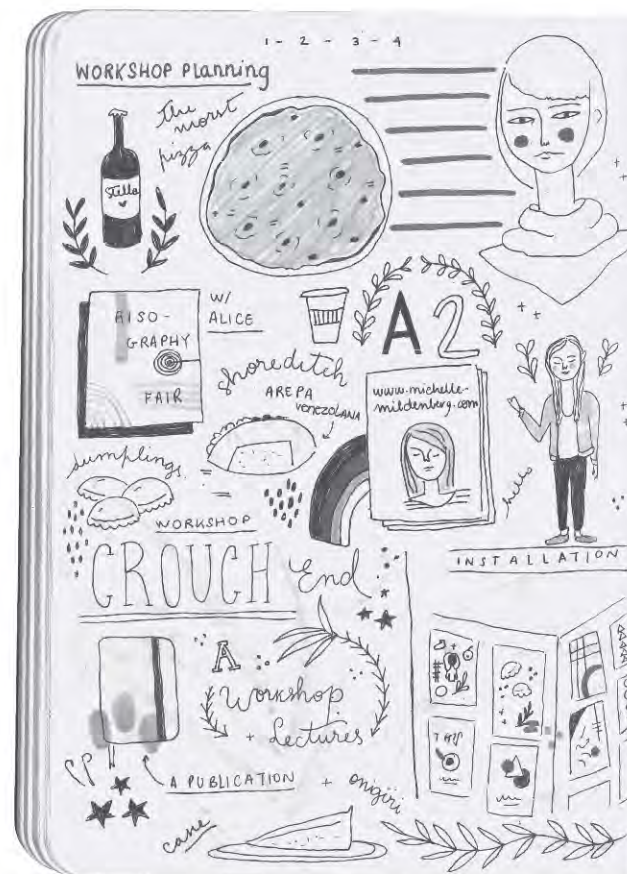 1 - 2 - 3 - 4
WORKSHOP Planning
the
worst
pizza
Stella
RISO-
GRAPHY
FAIR
W/
ALICE
A2
Shoreditch
AREPA
VENEZOLANA
www.michelle-
mildenberg.com
dumplings
hello
WORKSHOP
CROUCH End
INSTALLATION
A
Workshop
+ Lectures
A PUBLICATION + onigiri
cake